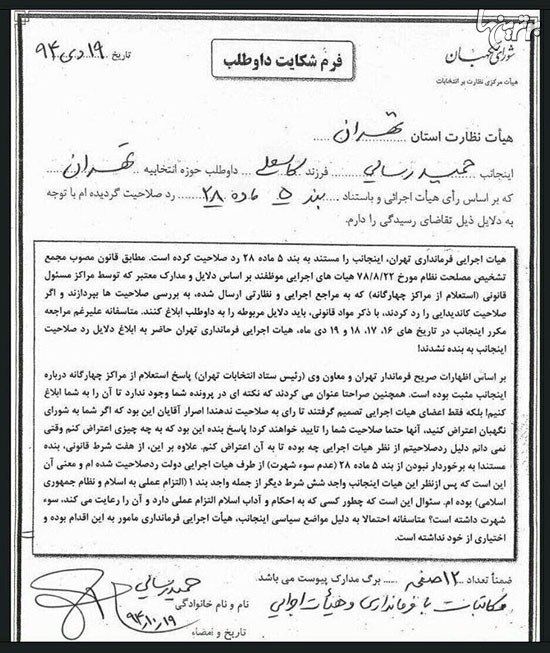 شورای نگهبان
هیأت مرکزی نظارت بر انتخابات
فرم شکایت داوطلب
تاریخ ۱۹ دی ۹۴
هیأت نظارت استان تهران
اینجانب حمید رسایی فرزند داوطلب حوزه انتخابیه تهران
که بر اساس رأی هیأت اجرائی و باستناد بند ۵ ماده ۲۸ رد صلاحیت گردیده ام با توجه
به دلایل ذیل تقاضای رسیدگی را دارم.
هیات اجرایی فرمانداری تهران، اینجانب را مستند به بند ۵ ماده ۲۸ رد صلاحیت کرده است. مطابق قانون مصوب مجمع
تشخیص مصلحت نظام مورخ ۷۸/۸/۲۲ هیات های اجرایی موظفند بر اساس دلایل و مدارک معتبر که توسط مراکز مسئول
قانونی (استعلام از مراکز چهارگانه) که به مراجع اجرایی و نظارتی ارسال شده، به بررسی صلاحیت ها بپردازند و اگر
صلاحیت کاندیدایی را رد کردند، با ذکر مواد قانونی، باید دلایل مربوطه را به داوطلب ابلاغ کنند. متاسفانه علیرغم مراجعه
مکرر اینجانب در تاریخ های ۱۶، ۱۷، ۱۸ و ۱۹ دی ماه، هیات اجرایی فرمانداری تهران حاضر به ابلاغ دلایل رد صلاحیت
اینجانب به بنده نشدند!
بر اساس اظهارات صریح فرماندار تهران و معاون وی (رئیس ستاد انتخابات تهران) پاسخ استعلام از مراکز چهارگانه درباره
اینجانب مثبت بوده است. همچنین صراحتا عنوان می کردند که نکته ای در پرونده شما وجود ندارد تا آن را به شما ابلاغ
کنیم! بلکه فقط اعضای هیات اجرایی تصمیم گرفتند تا رای به صلاحیت ندهند! اصرار آقایان این بود که اگر شما به شورای
نگهبان اعتراض کنید، آنها حتما صلاحیت شما را تایید خواهند کرد! پاسخ بنده این بود که به چه چیزی اعتراض کنم وقتی
نمی دانم دلیل ردصلاحیتم از نظر هیات اجرایی چه بوده تا به آن اعتراض کنم. علاوه بر این، از هفت شرط قانونی، بنده
مستندا به برخوردار نبودن از بند ۵ ماده ۲۸ (عدم سوء شهرت) از طرف هیات اجرایی دولت ردصلاحیت شده ام و معنی آن
این است که پس ازنظر این هیات اینجانب واجد شش شرط دیگر از جمله واجد بند ۱ (التزام عملی به اسلام و نظام جمهوری
اسلامی) بوده ام. سئوال این است که چطور کسی که به احکام و آداب اسلام التزام عملی دارد و آن را رعایت می کند، سوء
شهرت داشته است؟ متاسفانه احتمالا به دلیل مواضع سیاسی اینجانب، هیأت اجرایی فرمانداری مامور به این اقدام بوده و
اختیاری از خود نداشته است.
ضمناً تعداد ۱۲ صفحه برگ مدارک پیوست می باشد.
مکاتبات با فرمانداری و هیأت اجرایی
نام و نام خانوادگی حمید رسایی
تاریخ و امضاء ۹۴/۱۰/۱۹